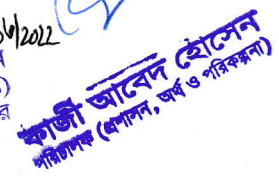 /2022
কাজী আবেদ হোসেন
পরিচালক (প্রশাসন, অর্থ ও পরিকল্পনা)